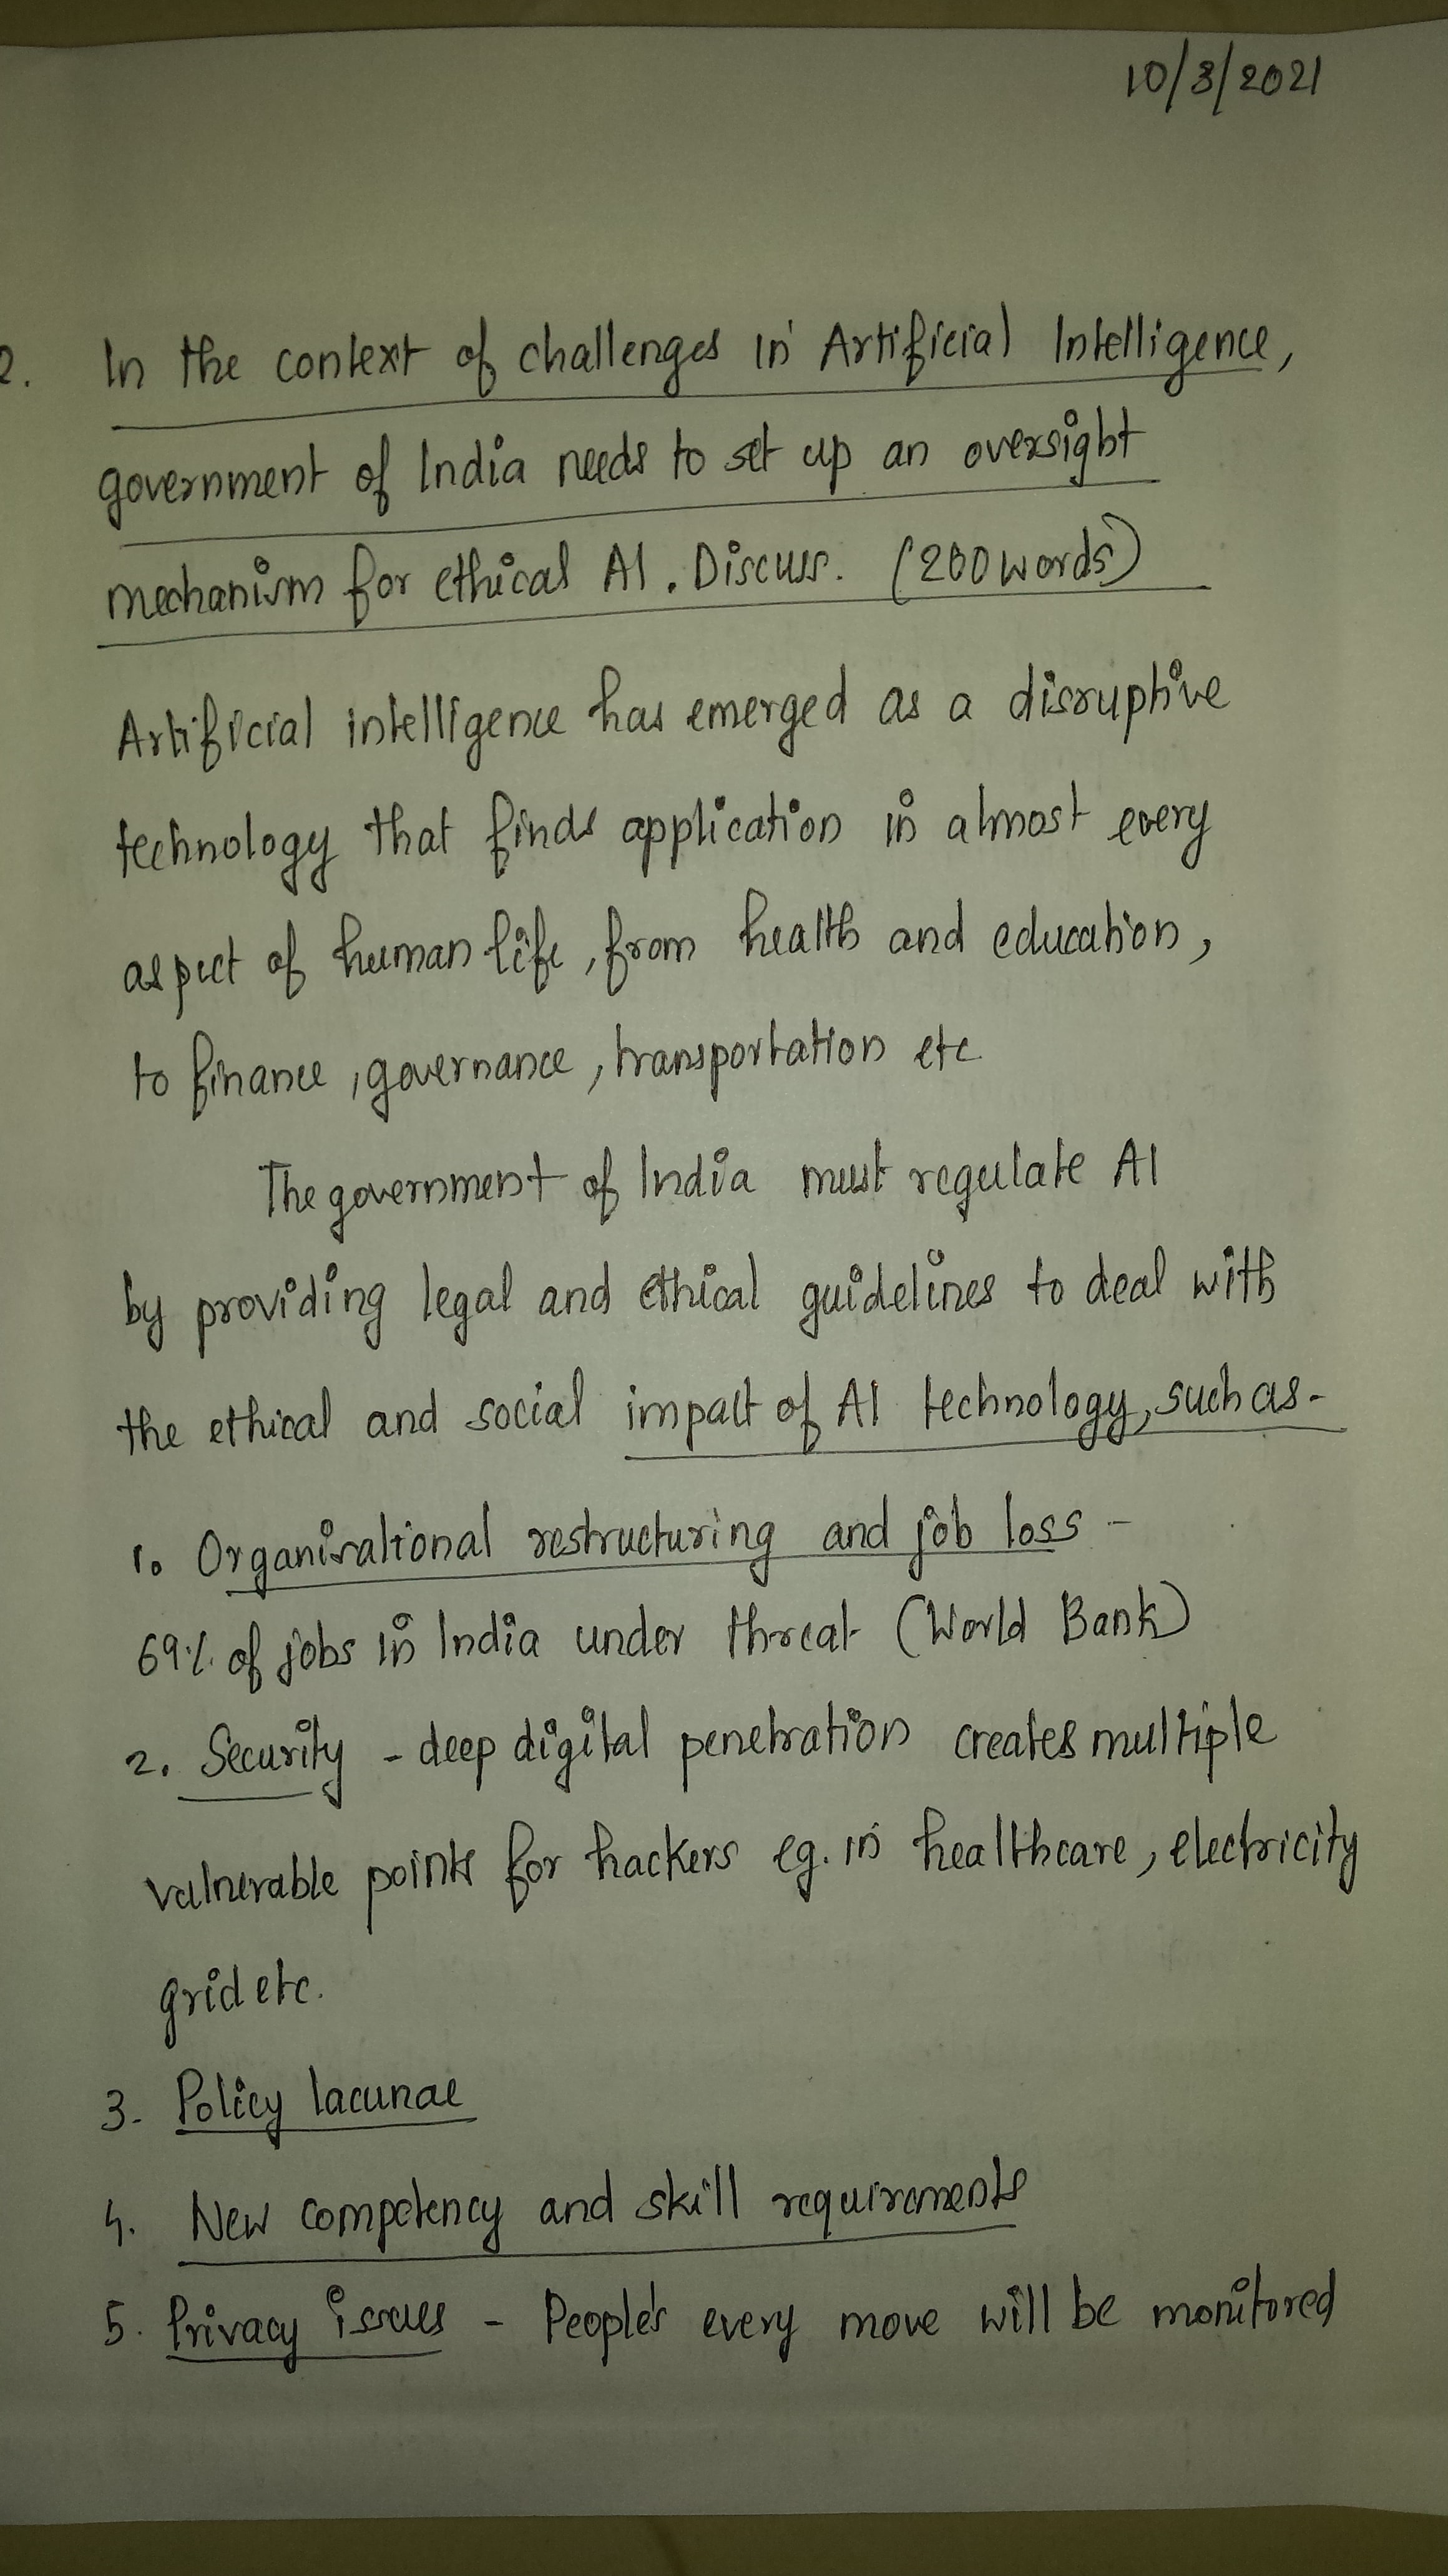 10/3/2021
2. In the context of challenges in Artificial Intelligence,
government of India needs to set up an oversight
mechanism for ethical AI. Discuss. (200 words)
Artificial intelligence has emerged as a disruptive
technology that finds application in almost every
aspect of human life, from health and education,
to finance, governance, transportation etc
The government of India must regulate AI
by providing legal and ethical guidelines to deal with
the ethical and social impact of AI technology, such as -
1. Organisational restructuring and job loss -
69% of jobs in India under threat (World Bank)
2. Security - deep digital penetration creates multiple
vulnerable points for hackers eg. in healthcare, electricity
grid etc.
3. Policy lacunae
4. New competency and skill requirements
5. Privacy issues - People's every move will be monitored